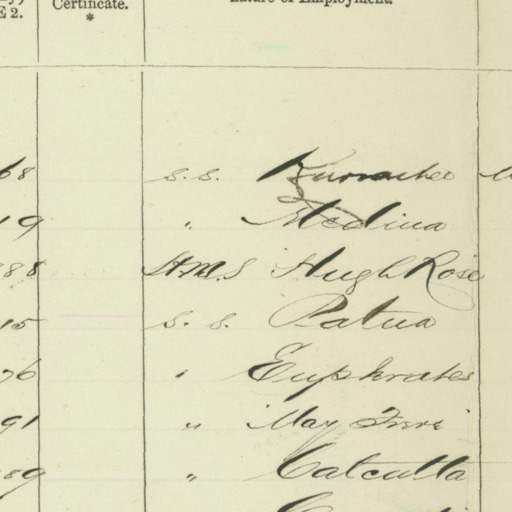 E 2. Certificate. Nature of Employment.
*
68 S. S. Kurrachee
19 " Medina
388 H.M.S "Hugh Rose
15 S. S. Patna
76 " Euphrates
91 " "May Frere"
89 " Calcutta